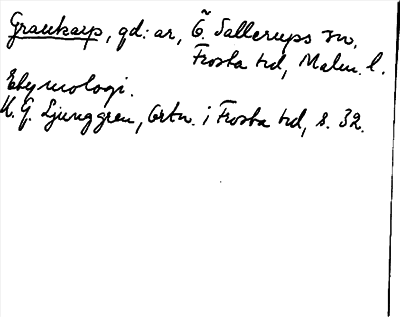 Graukarp, gd:ar, Ö. Sallerups sn,
Frosta hd, Malm. l.
Etymologi.
K. G. Ljunggren, Ortn. i Frosta hd, s. 32.